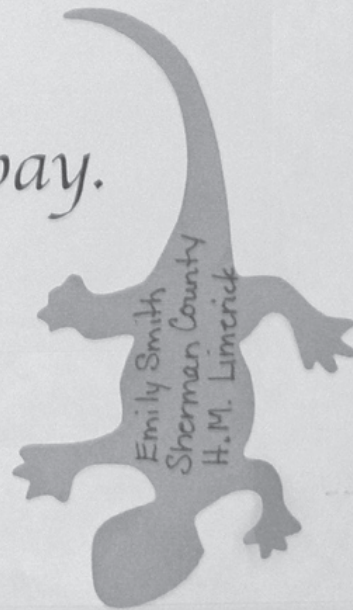 Emily Smith
Sherman County
H.M. Limerick